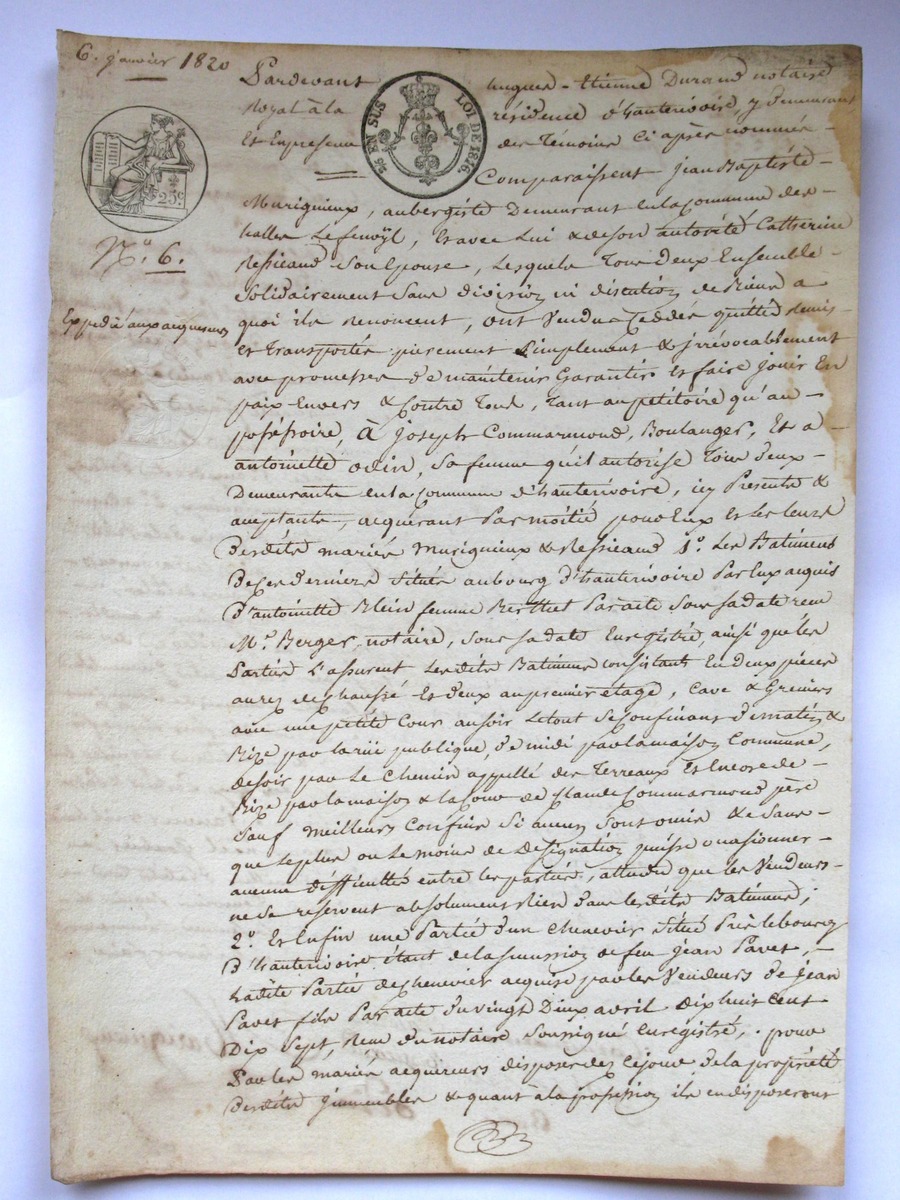 6. janvier 1820
Pardevant hugues-Etienne Durand notaire
Royal à la résidence d'hauterivoire, y demeurant
Et En presence des Témoins Ci après nommés
25 EN SUS LOI DE 1816.
25c
Comparaissent jean Baptiste
N.o 6.
Murigneux, aubergiste Demeurant En la Commune des
halles Le fenoÿl, Et avec Lui & de son autorité Catherine
Ressicaud Son Epouse, Lesquels Tous deux Ensemble
Expédié aux acquereurs
Solidairement Sans division ni discution de Biens a
quoi ils Renoncent, ont Vendu Ceddés quittés Remis
Et Transportés purement Simplement & jrrévocablement
avec promesses de maintenir Garantir Et faire jouir En
paix Envers & Contre Tous, tant au petitoire qu'au
poséssoire, à Joseph Commarmond, Boulanger, Et a
antoinette odin, Sa femme qu'il autorise Tous deux
Demeurants en la Commune d'hauterivoire, icy Presents &
acceptants, acquérant Par moitié pour Eux Et Les Leurs
Desdits mariés Murigneux & Ressicaud 1.o Les Batiments
De Ces derniers Situés au bourg d'hauterivoire Par Eux acquis
D'antoinette Blein femme Berthet Par acte Sous Sa date reçu
M.e Berger, notaire, Sous Sa date Enregistré, ainsi que les
Parties L'assurent Lesdits Batiments consistants En deux pièces
au rez de chaussé Et deux au premier étage, Cave & Greniers
avec une petite Cour au soir Le tout Se confinant de matin &
Bize par la rüe publique, de midi par la maison Commune,
de soir par Le Chemin appellé des Terreaux Et Encore de
Bize par la maison & la Cour de Claude Commarmond père
Sauf meilleurs Confins Si aucuns Sont omis & Sans
que Le plus ou Le moins de désignation puisse ocasionner
aucune difficultés entre les parties, attendu que les Vendeurs
ne se reservent absolument Rien dans lesdits Batiments;
2.o Et Enfin une Partie d'un Chenevier Situé Près le bourg
D'hauterivoire étant de la succession de feu Jean Pavet,
Ladite Partie de Chenevier acquise par les Vendeurs de Jean
Pavet fils Par acte du vingt Deux avril Dix huit Cent
Dix Sept, Reçu du notaire Soussigné Enregistré, pour
Par les mariés acquereurs disposer dez Cejour de la propriété
desdits jmmeubles & quant à la possession ils en disposeront